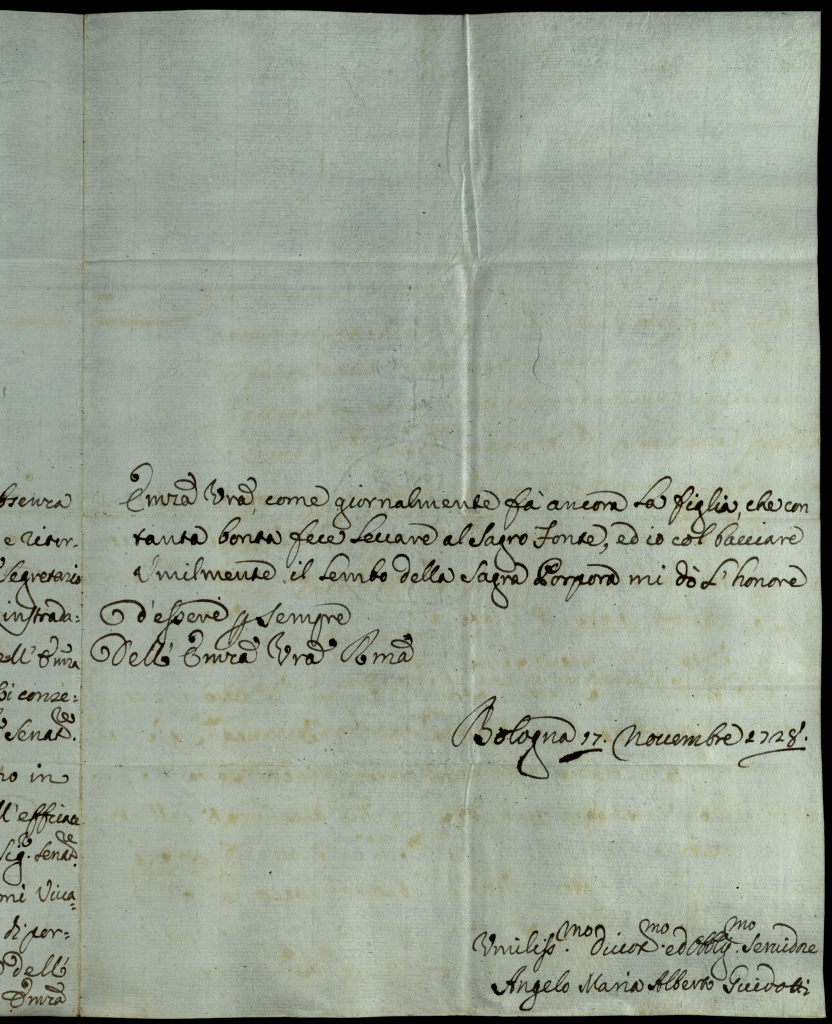 bsenza
e ritor-
Segretario
instrada=
ell' Emza
bi conse=
Senat.re
no in
ll'efficace
Sig.r Senat.re
mi Vica=
di por=
dell'
Emza
Emza Vra, come giornalmente fà ancora La figlia, che con
tanta bontà fece Levare al Sagro Fonte, ed io col bacciare
Umilmente il Lembo della Sagra Porpora mi dò L'honore
d'essere p sempre
Dell' Emza Vra Rma
Bologna 17. Novembre 1728.
Umiliss.mo Divot.mo ed Obblg.mo Servidore
Angelo Maria Alberto Guidotti